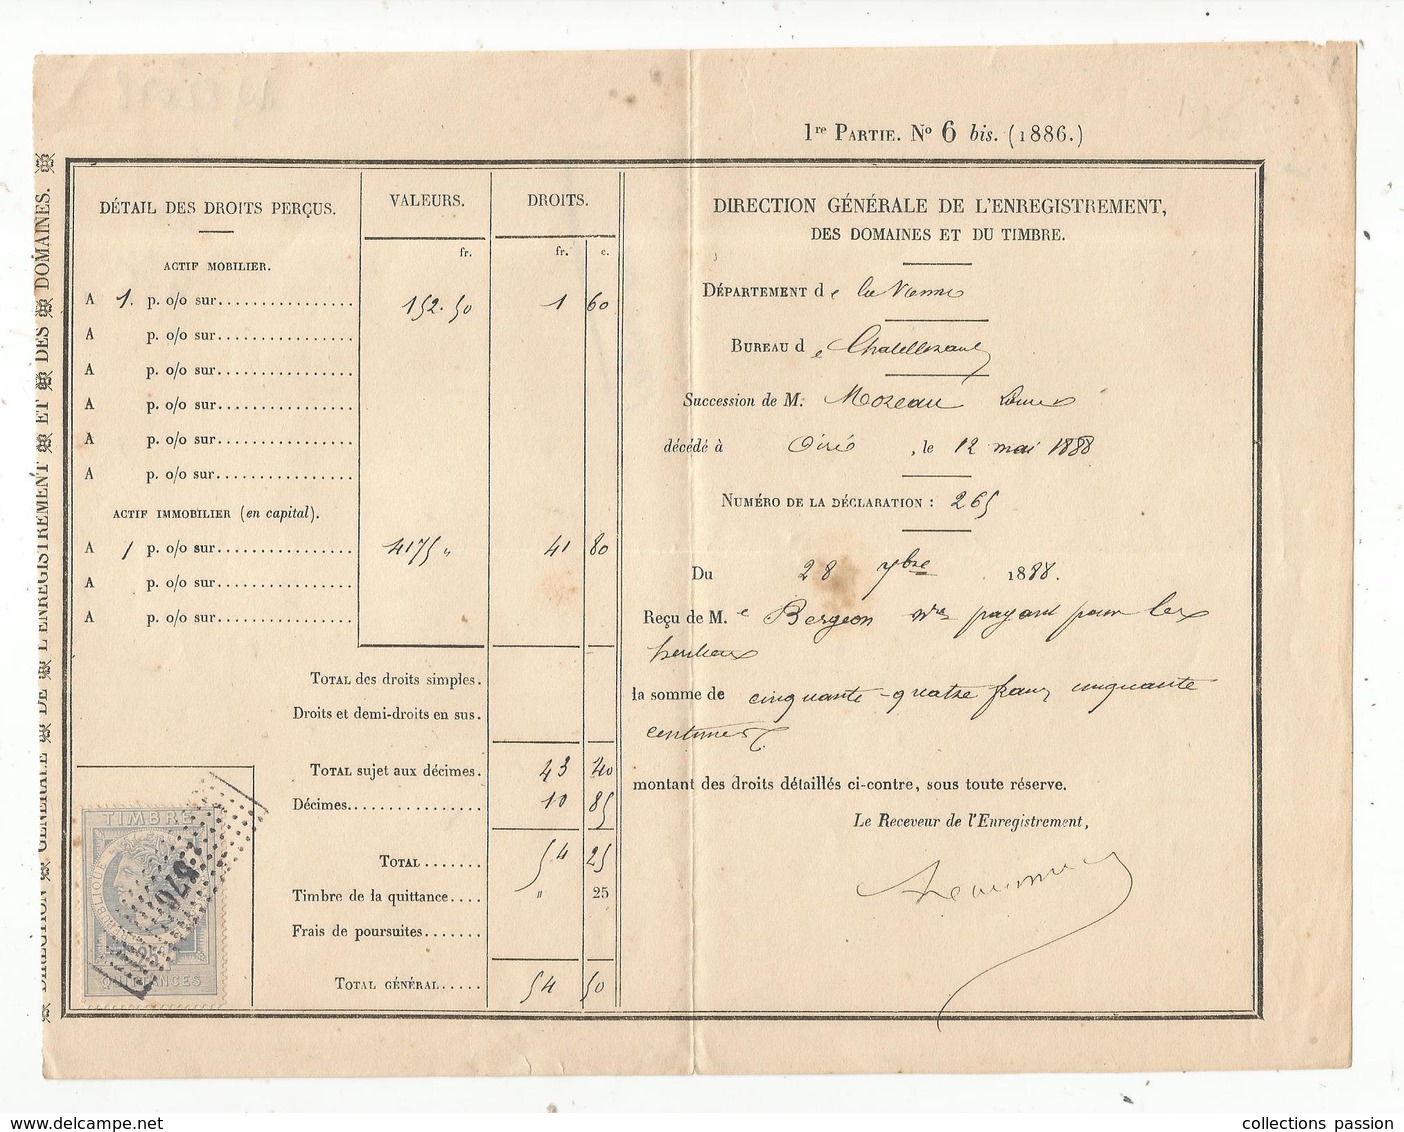 1re PARTIE. No 6 bis. (1886.)
DIRECTION GÉNÉRALE DE L'ENREGISTREMENT ET DES DOMAINES.
DÉTAIL DES DROITS PERÇUS. VALEURS. DROITS.
fr. fr. c.
ACTIF MOBILIER.
A 1. p. o/o sur................ 152.50 1 60
A p. o/o sur................
A p. o/o sur................
A p. o/o sur................
A p. o/o sur................
A p. o/o sur................
ACTIF IMMOBILIER (en capital).
A 1 p. o/o sur................ 4175 " 41 80
A p. o/o sur................
A p. o/o sur................
TOTAL des droits simples.
Droits et demi-droits en sus.
TOTAL sujet aux décimes. 43 40
Décimes............... 10 85
TOTAL ....... 54 25
Timbre de la quittance.... " 25
Frais de poursuites.......
TOTAL GÉNÉRAL..... 54 50
TIMBRE
RÉPUBLIQUE
QUITTANCES
DIRECTION GÉNÉRALE DE L'ENREGISTREMENT,
DES DOMAINES ET DU TIMBRE.
DÉPARTEMENT de la Vienne
BUREAU de Chatellerault
Succession de M. Mozeau
décédé à Oiré, le 12 mai 1888
NUMÉRO DE LA DÉCLARATION : 265
Du 28 7bre 1888.
Reçu de M.e Bergeon nre payant pour les
héritiers
la somme de cinquante-quatre francs cinquante
centimes
montant des droits détaillés ci-contre, sous toute réserve.
Le Receveur de l'Enregistrement,
collections passion